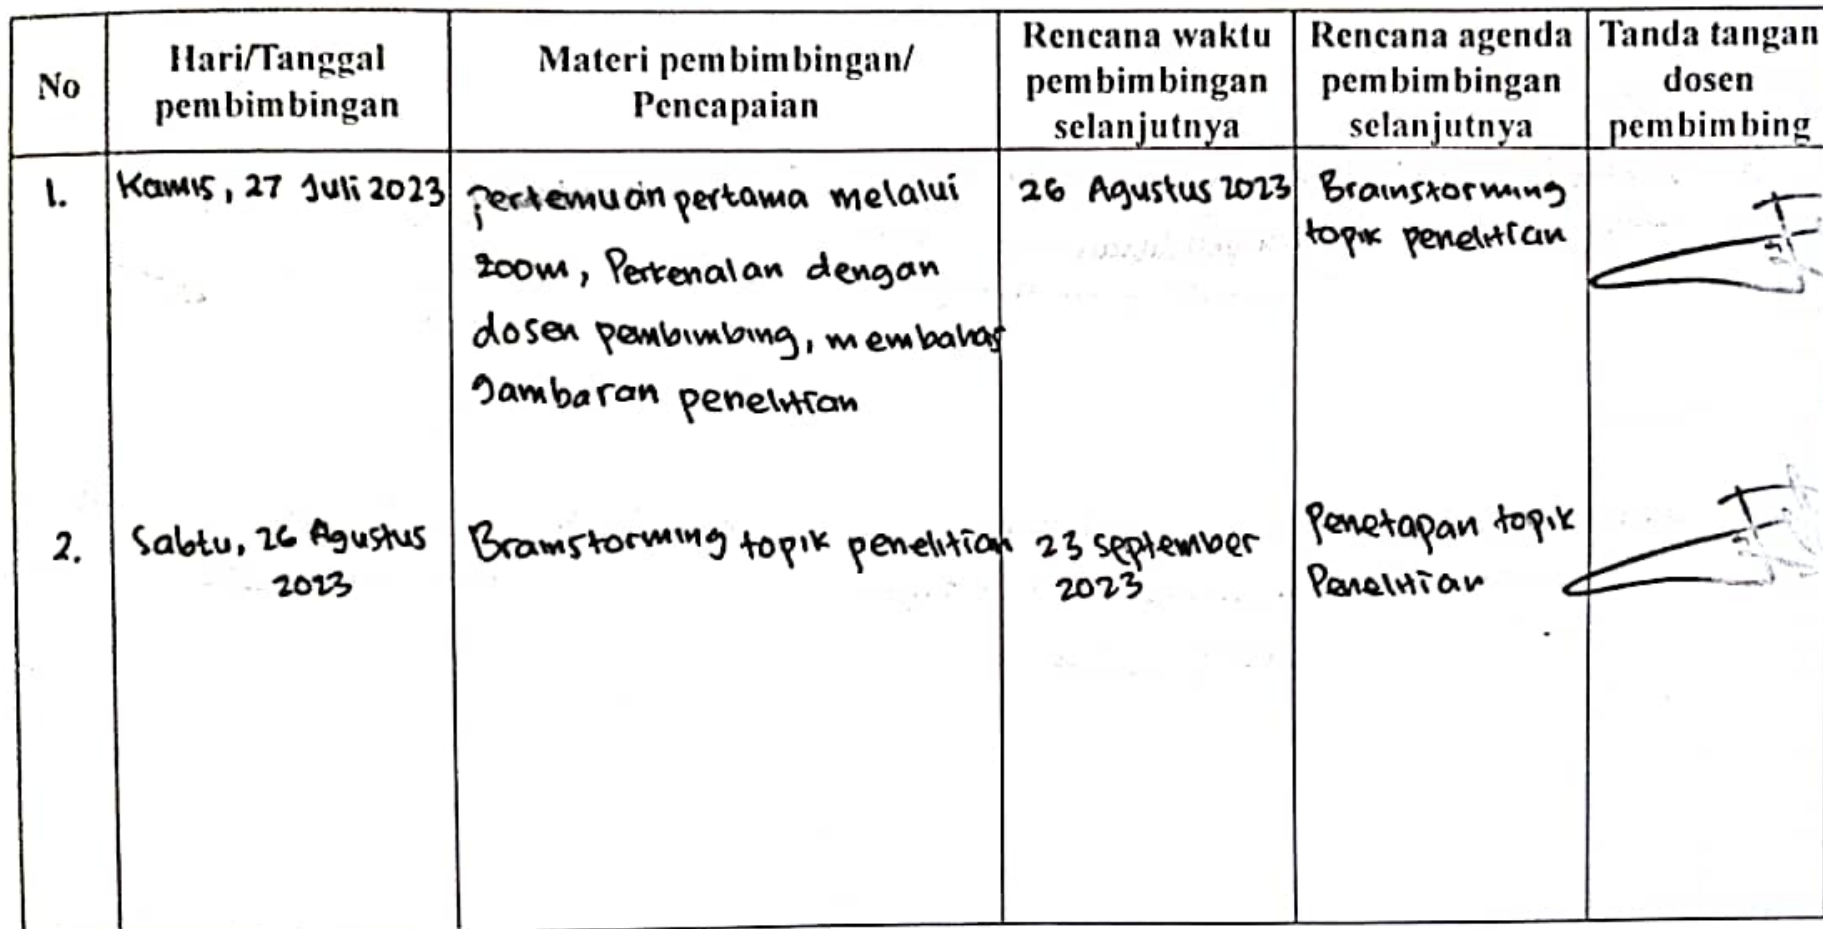 No
Hari/Tanggal
pembimbingan
Materi pembimbingan/
Pencapaian
Rencana waktu
pembimbingan
selanjutnya
Rencana agenda
pembimbingan
selanjutnya
Tanda tangan
dosen
pembimbing
1.
Kamis, 27 Juli 2023
Pertemuan pertama melalui
zoom, Perkenalan dengan
dosen pembimbing, membahas
gambaran penelitian
26 Agustus 2023
Brainstorming
topik penelitian
2.
Sabtu, 26 Agustus
2023
Brainstorming topik penelitian
23 September
2023
Penetapan topik
Penelitian